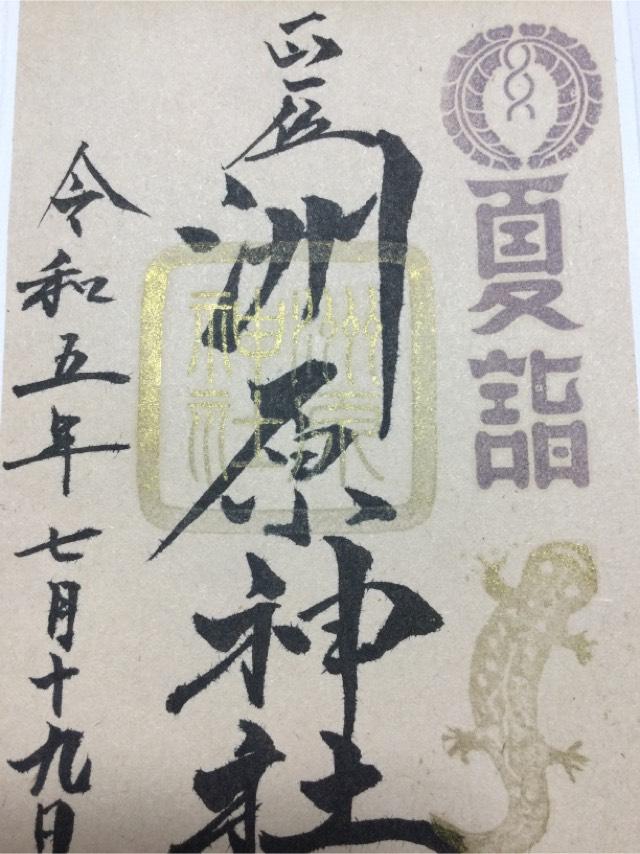 夏詣
正一位
洲原神社
洲原
神社
令和五年七月十九日